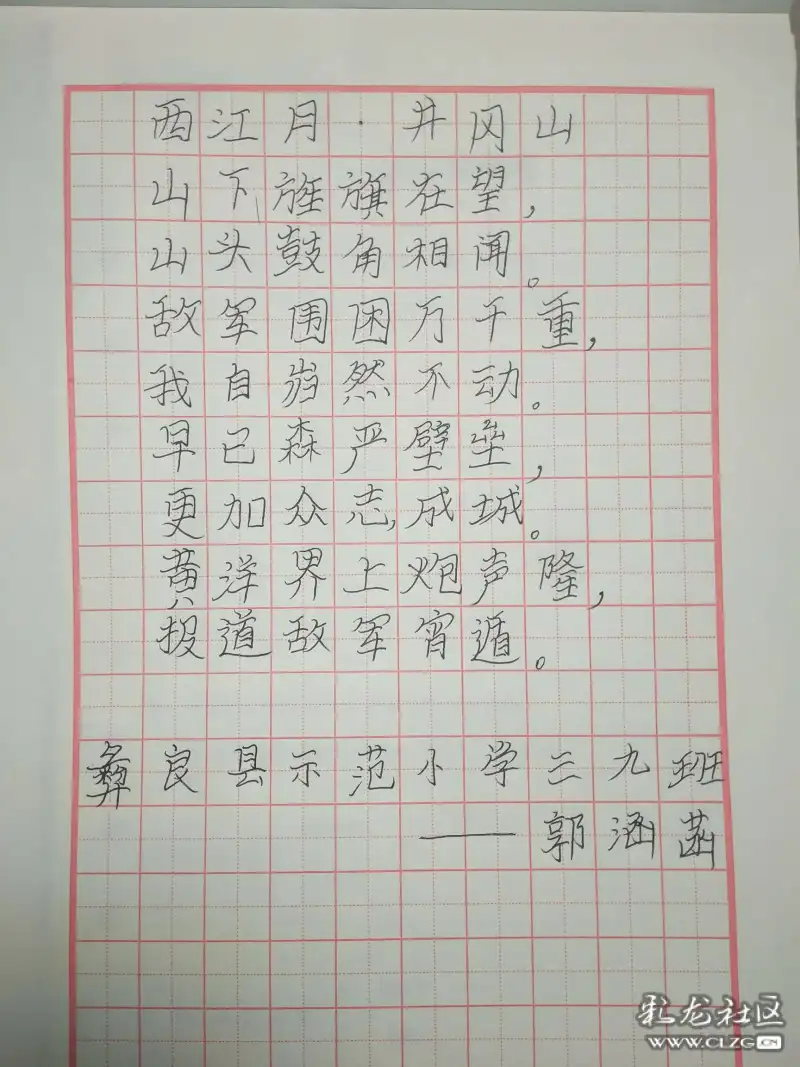 西江月·井冈山
山下旌旗在望，
山头鼓角相闻。
敌军围困万千重，
我自岿然不动。
早已森严壁垒，
更加众志,成城。
黄洋界上炮声隆，
报道敌军宵遁。
彝良县示范小学三九班
——郭涵菡
乳龙社区
WWW.CLZG.CN